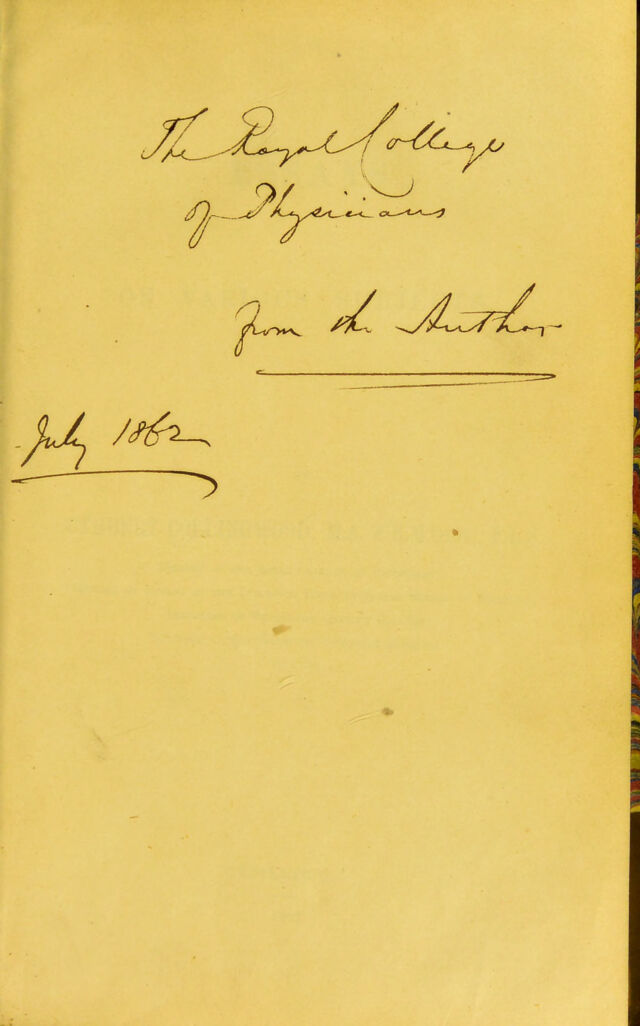 The Royal College
of Physicians
from the Author
July 1862